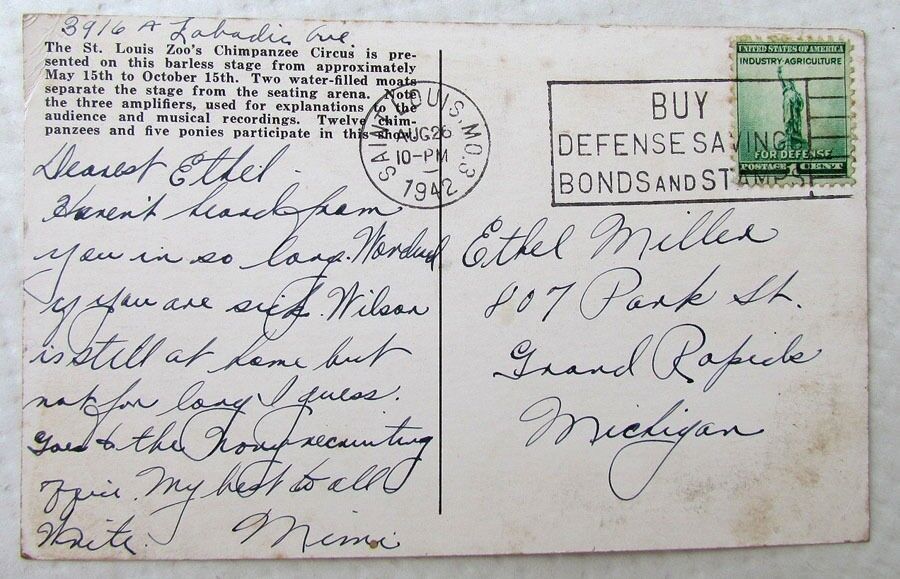 3916 A Labadie Ave.
The St. Louis Zoo's Chimpanzee Circus is pre-
sented on this barless stage from approximately
May 15th to October 15th. Two water-filled moats
separate the stage from the seating arena. Note
the three amplifiers, used for explanations to the
audience and musical recordings. Twelve chim-
panzees and five ponies participate in this show.
Dearest Ethel
Haven't heard from
you in so long. Wondered
if you are sick. Wilson
is still at home but
not for long I guess.
Goes to the Navy recruiting
office. My best to all
Write. Mimi
SAINT LOUIS, MO. 3
AUG 26
10-PM
1942
BUY
DEFENSE SAVINGS
BONDS AND STAMPS
UNITED STATES OF AMERICA
INDUSTRY-AGRICULTURE
FOR DEFENSE
POSTAGE 1 CENT
Ethel Miller
807 Park St.
Grand Rapids
Michigan